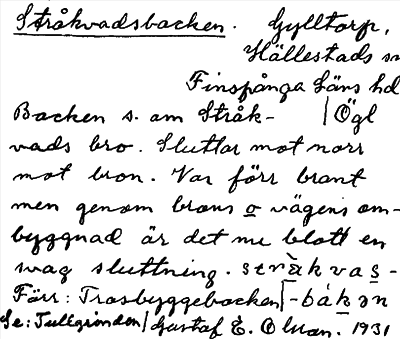 Stråkvadsbacken. Gylltorp,
Hällestads sn
Finspånga läns hd
Backen s. om Stråk- | Ögl
vads bro. Sluttar mot norr
mot bron. Var förr brant
men genom brons o vägens om-
byggnad är det nu blott en
svag sluttning. stràkvas-
Förr: Trasbyggebacken -bákən
Se: Tullgrinden Gustaf E. Olsson. 1931